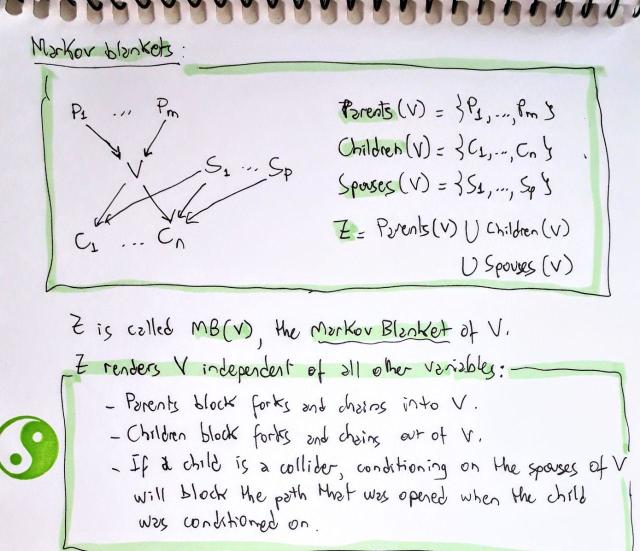 Markov blankets:
P1 ... Pm
V
S1 ... Sp
C1 ... Cn
Parents (V) = {P1, ..., Pm}
Children (V) = {C1, ..., Cn}
Spouses (V) = {S1, ..., Sp}
Z = Parents (V) ∪ Children (V)
∪ Spouses (V)
Z is called MB(V), the Markov Blanket of V.
Z renders V independent of all other variables:
- Parents block forks and chains into V.
- Children block forks and chains out of V.
- If a child is a collider, conditioning on the spouses of V
will block the path that was opened when the child
was conditioned on.